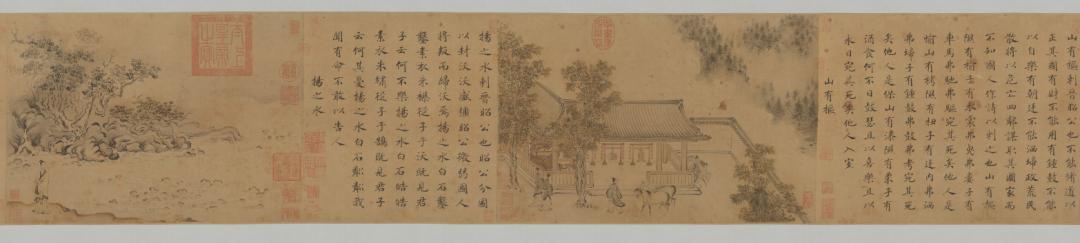 山有樞刺晉昭公也不能脩道以
正其國有財不能用有鍾鼓不能
以自樂有朝廷不能洒埽政荒民
散將以危亡四鄰謀取其國家而
不知國人作詩以刺之也山有樞
隰有榆子有衣裳弗曳弗婁子有
車馬弗馳弗驅宛其死矣他人是
愉山有栲隰有杻子有廷內弗洒
弗埽子有鍾鼓弗鼓弗考宛其死
矣他人是保山有漆隰有栗子有
酒食何不日鼓瑟且以喜樂且以
永日宛其死矣他人入室
山有樞
揚之水刺晉昭公也昭公分國
以封沃沃盛彊昭公微弱國人
將叛而歸沃焉揚之水白石鑿
鑿素衣朱襮從子于沃既見君
子云何不樂揚之水白石皓皓
素衣朱繡從子于鵠既見君子
云何其憂揚之水白石粼粼我
聞有命不敢以告人
揚之水